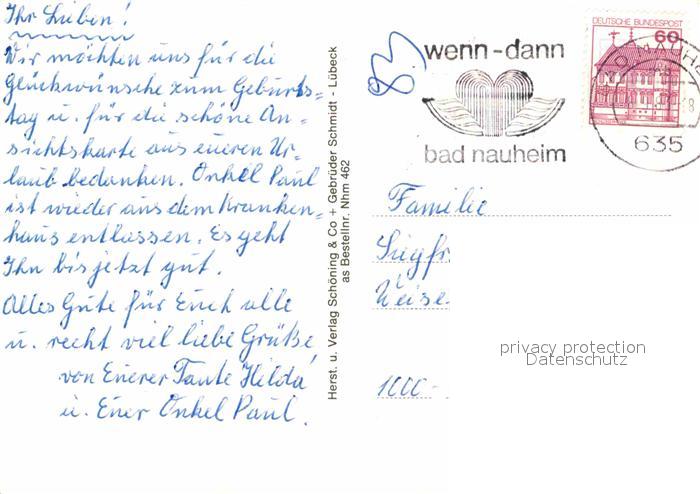 Ihr Lieben!
Wir möchten uns für die
Glückwünsche zum Geburts=
tag u. für die schöne An-
sichtskarte aus eueren Ur-
laub bedanken. Onkel Paul
ist wieder aus dem Kranken=
haus entlassen. Es geht
Ihn bis jetzt gut.
Alles Gute für Euch alle
u. recht viel liebe Grüße
von Euerer Tante Hilda
u. Euer Onkel Paul.
Herst. u. Verlag Schöning & Co + Gebrüder Schmidt - Lübeck
as Bestellnr. Nhm 462
83
wenn-dann
bad nauheim
DEUTSCHE BUNDESPOST
60
635
Familie
Siegfr
Weise
1000-
privacy protection
Datenschutz